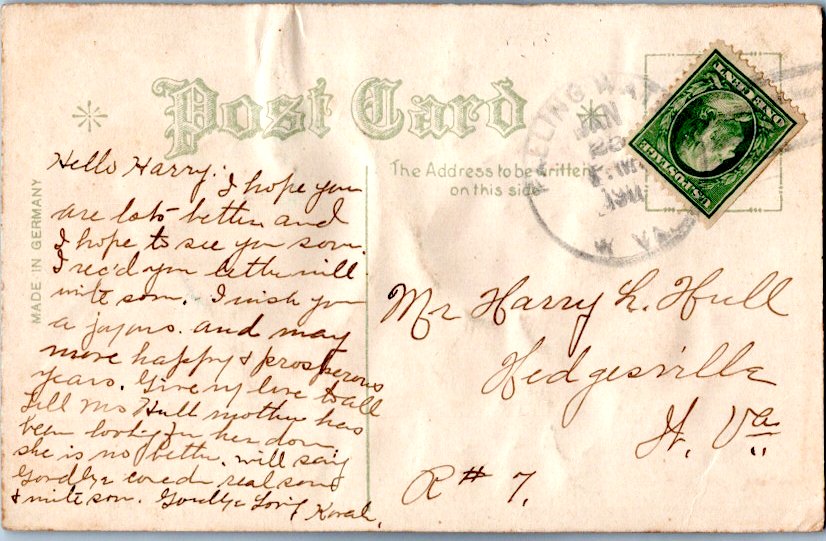 Post Card
The Address to be written
on this side
MADE IN GERMANY
Hello Harry:
I hope you
are lots better and
I hope to see you soon.
I rec'd your letter will
write soon. I wish you
a joyous. and many
more happy & prosperous
years. Give my love to all
Tell Mrs Hull mother has
been looking for her down
she is no better. will say
Goodbye come down real soon
& write soon. Goodbye Lovingly Korah.
Mr Harry L. Hull
Hedgesville
W. Va
R # 7.
LING WAT
JAN
W. VA
U.S. POSTAGE
ONE CENT